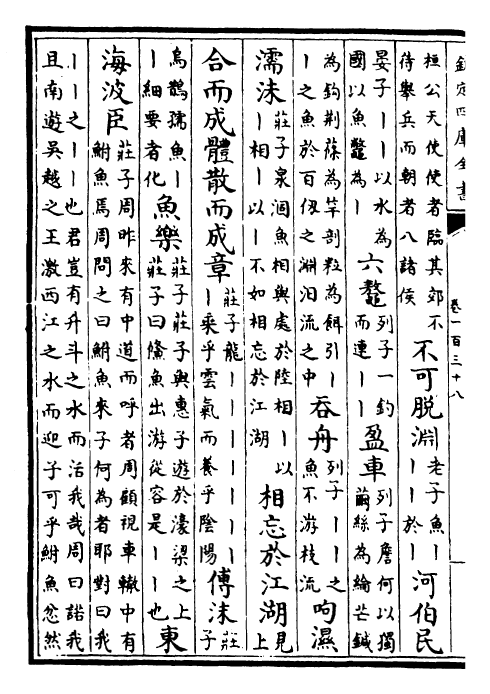 欽定四庫全書
卷一百三十八
桓公天使使者臨其郊不
侍舉兵而朝者八諸侯
不可脫淵
老子魚丨
丨丨於丨
河伯民
晏子丨丨以水為
國以魚鼈為丨
六鼇
列子一釣
而連丨丨
盈車
列子詹何以獨
繭絲為綸芒鍼
為鈎荆篠為竿剖粒為餌引丨
丨之魚於百仭之淵汨流之中
吞舟
列子丨丨之
魚不游枝流
呴濕
濡沫
莊子泉涸魚相與處於陸相丨以
丨相丨以丨不如相忘於江湖
相忘於江湖
見
上
合而成體散而成章
莊子龍丨丨丨丨丨丨丨
丨乘乎雲氣而養乎陰陽
傅沫
莊
子
烏鵲孺魚丨
丨細要者化
魚樂
莊子莊子與惠子遊於濠梁之上
莊子曰鯈魚出游從容是丨丨也
東
海波臣
莊子周昨來有中道而呼者周顧視車轍中有
鮒魚焉周問之曰鮒魚來子何為者耶對曰我
丨丨之丨丨也君豈有升斗之水而活我哉周曰諾我
且南遊吳越之王激西江之水而迎子可乎鮒魚忿然